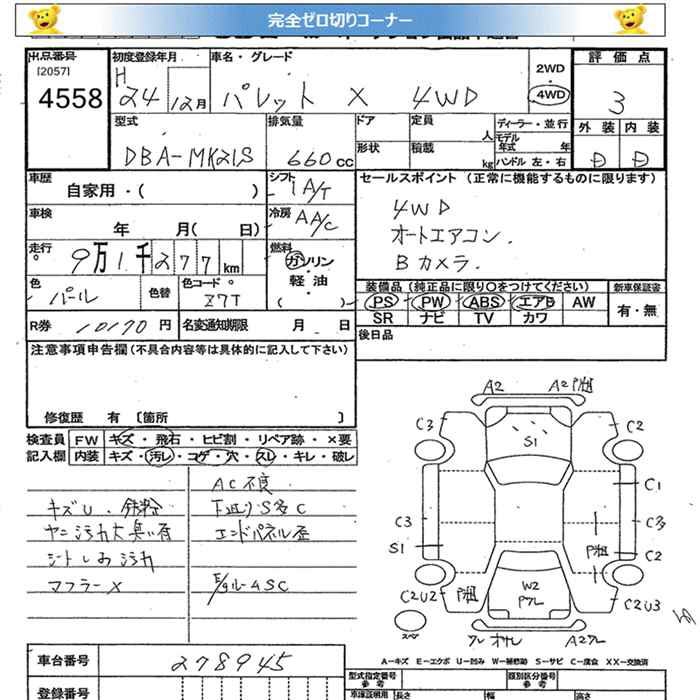 完全ゼロ切りコーナー
出品番号 初度登録年月 車名・グレード 2WD・4WD 評価点
[2057] 4558 H 24 12月 パレット X 4WD 3
型式 排気量 ドア 定員 人 ディーラー・並行 外装 内装
DBA-MK21S 660cc 形状 積載 kg モデル年式 年 ハンドル 左・右 D D
車歴 自家用・( ) シフト IA/T セールスポイント (正常に機能するものに限ります)
車検 年 月( 日) 冷房 AA/C 4WD
走行 9万1千277km 燃料 ガソリン・軽油( ) オートエアコン.
Bカメラ.
色 パール 色替 色コード Z7T 装備品(純正品に限り○をつけてください) 新車保証書
PS PW ABS エアB AW 有・無
SR ナビ TV カワ
R券 10190円 名変通知期限 月 日 後日品
注意事項申告欄(不具合内容等は具体的に記入して下さい)
修復歴 有 [箇所 ]
検査員記入欄 FW キズ・飛石・ヒビ割・リペア跡・×要
内装 キズ・汚レ・コゲ・穴・スレ・キレ・破レ
AC不良
キズU.鉄粉 下廻りS多C
ヤニ汚れ大臭い有 エンドパネル歪
シートしみ汚れ
マフラーX E/gルームSC
A2 A2 P粗
C3 S1 C2
C1
C3 C3
S1 P粗 C2
C2U2 P粗 W2 Pワレ C2U3
スペア ワレ A2ワレ
A-キズ E-エクボ U-凹み W-補修跡 S-サビ C-腐食 XX-交換済
車台番号 278945 型式指定番号 参考 類別区分番号 参考
登録番号 車庫証明用 長さ 幅 高さ